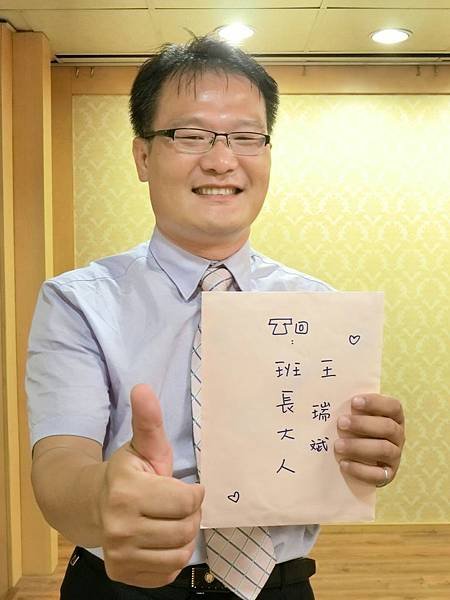 TO:
王瑞斌
班長大人